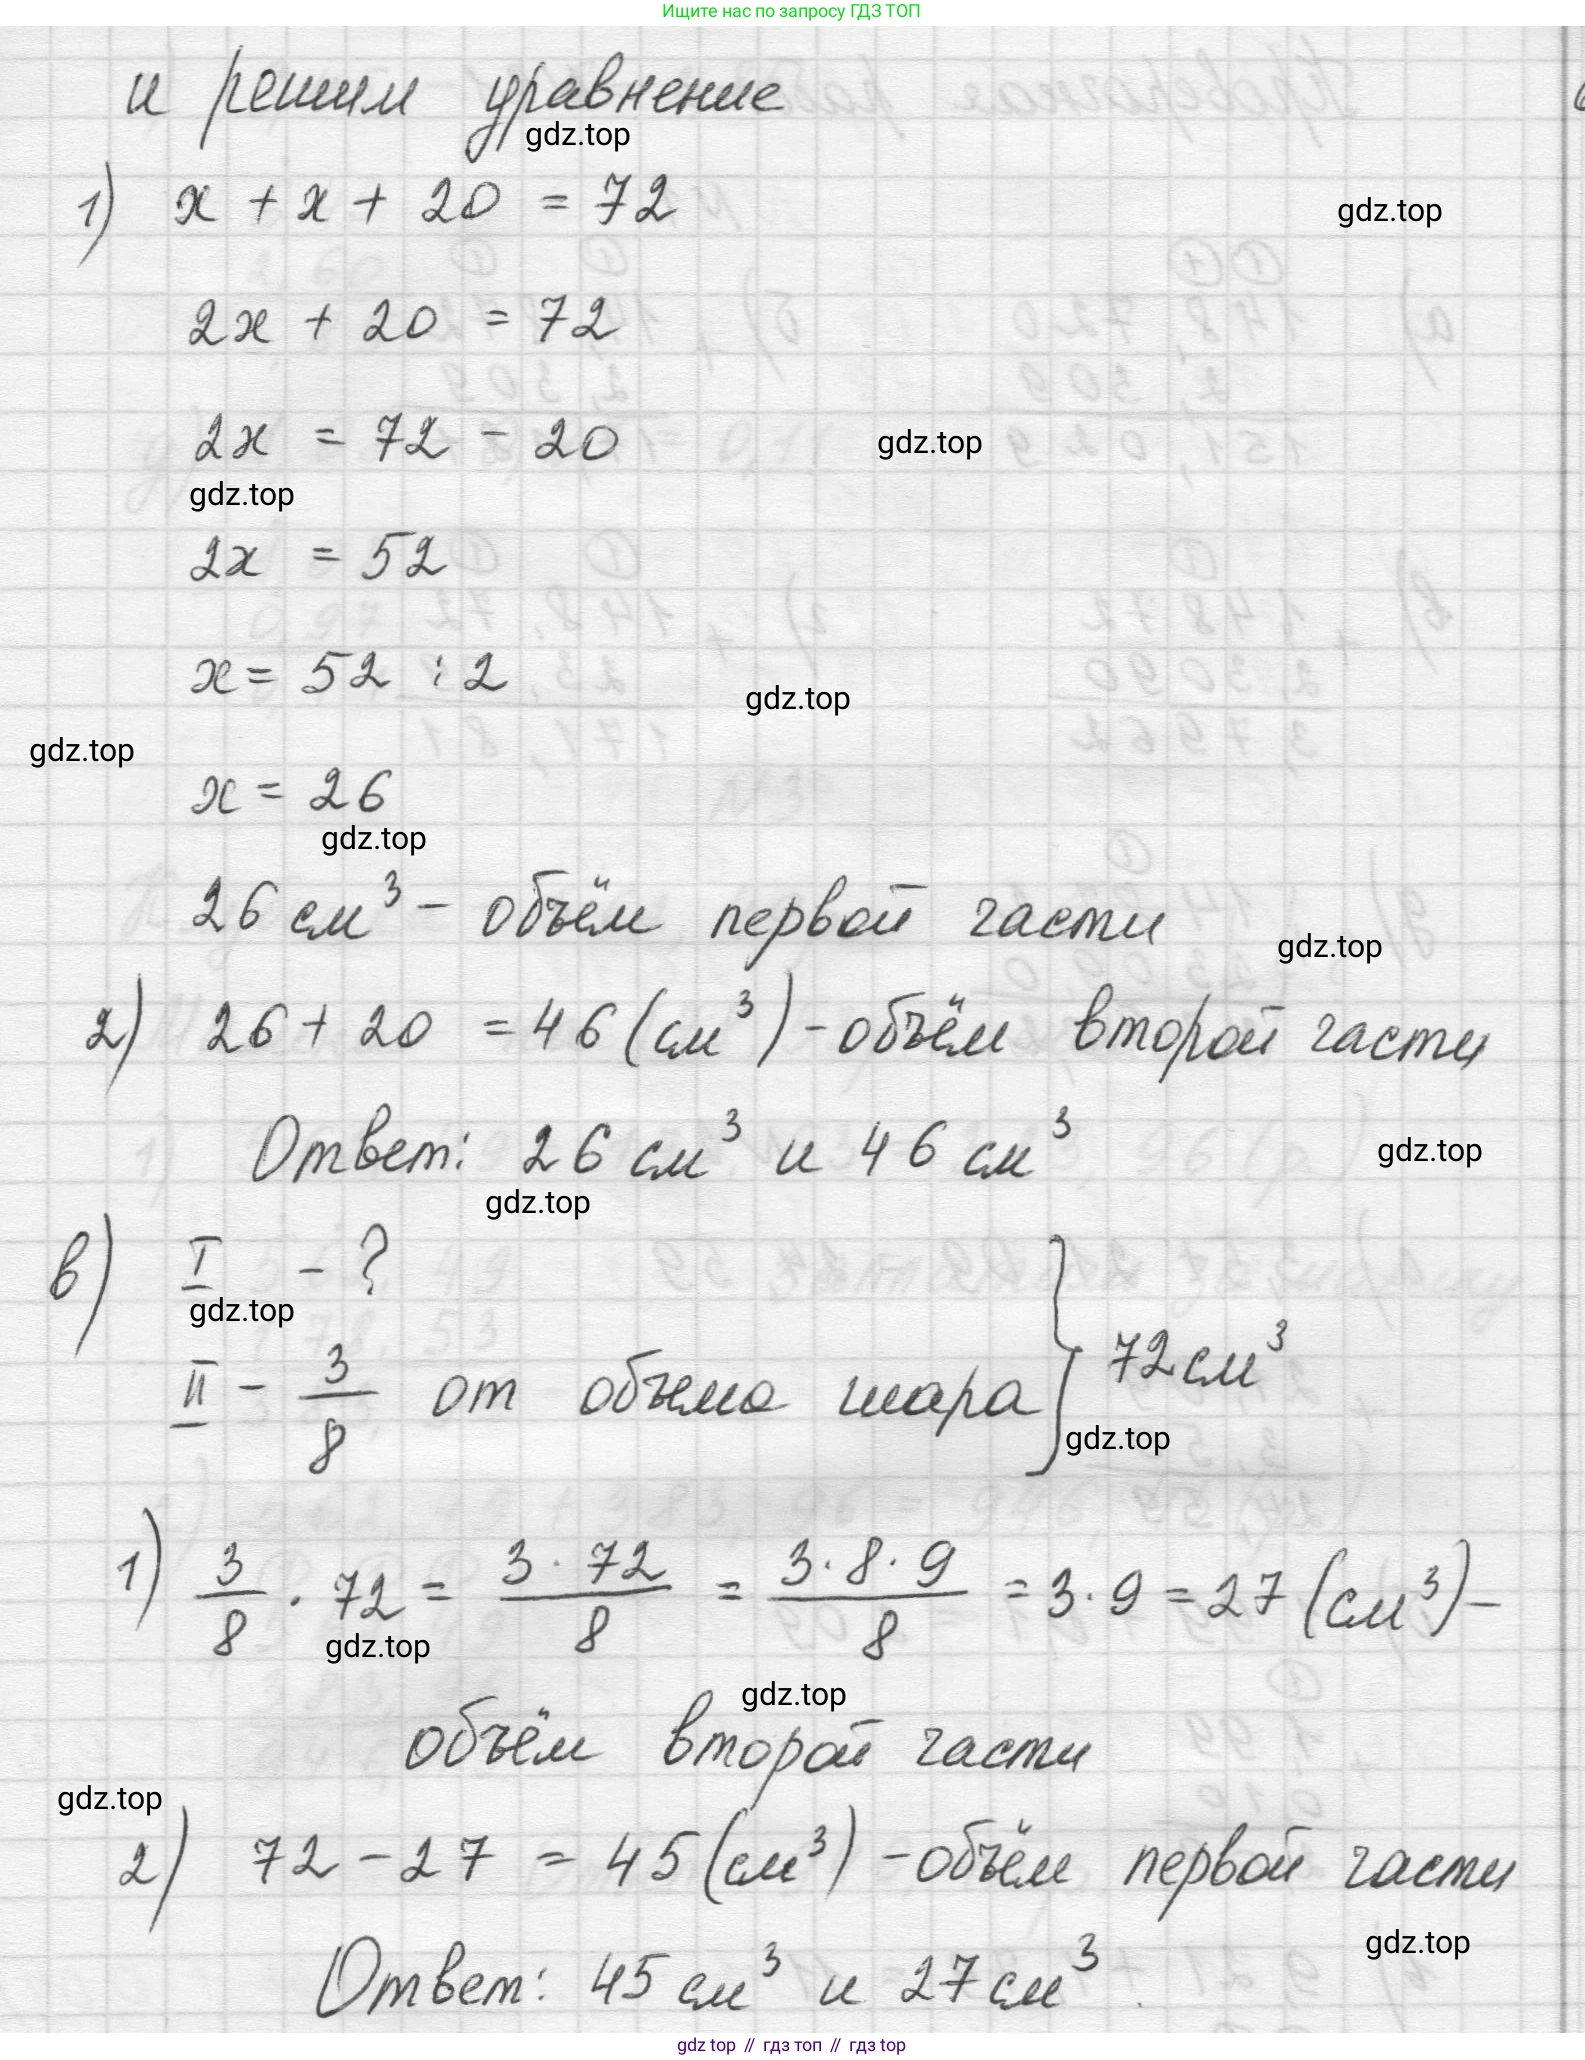 Ищите нас по запросу ГДЗ ТОП
и решим уравнение
gdz.top
1) x + x + 20 = 72
gdz.top
2x + 20 = 72
2x = 72 - 20
gdz.top
gdz.top
2x = 52
x = 52 : 2
gdz.top
gdz.top
x = 26
gdz.top
26 см³ - объём первой части
gdz.top
2) 26 + 20 = 46 (см³) - объём второй части
Ответ: 26 см³ и 46 см³
gdz.top
gdz.top
в) I - ?
gdz.top
72 см³
II - 3/8 от объема шара
gdz.top
1) 3/8 · 72 = 3 · 72/8 = 3 · 8 · 9/8 = 3 · 9 = 27 (см³) -
gdz.top
gdz.top
объём второй части
gdz.top
2) 72 - 27 = 45 (см³) - объём первой части
gdz.top
Ответ: 45 см³ и 27 см³.
gdz top // гдз топ // гдз top